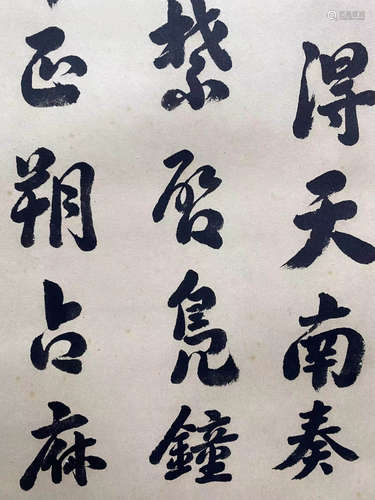 得天南奏
棨啓鳧鐘
正朔占麻